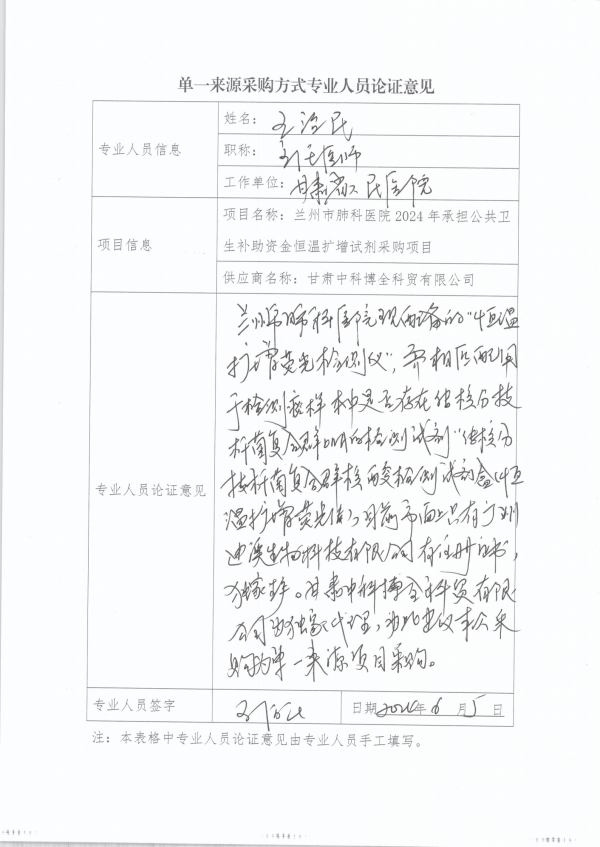 单一来源采购方式专业人员论证意见
专业人员信息
姓名：
职称：主任医师
工作单位：甘肃省人民医院
项目信息
项目名称：兰州市肺科医院 2024 年承担公共卫
生补助资金恒温扩增试剂采购项目
供应商名称：甘肃中科博全科贸有限公司
专业人员论证意见
兰州市肺科医院现配备的“恒温
扩增荧光检测仪”，需相匹配用
于检测痰样本中是否存在结核分枝
杆菌复合群DNA的检测试剂“结核分
枝杆菌复合群核酸检测试剂盒（恒
温扩增荧光法）”，目前市面上只有广州
迪澳生物科技有限公司有注册证书，
独家生产。甘肃中科博全科贸有限
公司为独家代理，为此建议本次采
购为单一来源项目采购。
专业人员签字
日期 2024年 6 月 5 日
注：本表格中专业人员论证意见由专业人员手工填写。